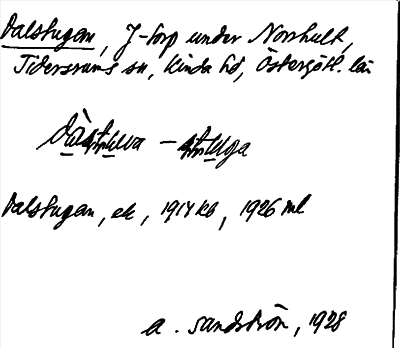 Dalstugan, J-torp under Norrhult,
Tidersrums sn, Kinda hd, Östergötl. län
dàstuwa - stuga
Dalstugan, ek, 1917 kb, 1926 ml
A. Sandström, 1928